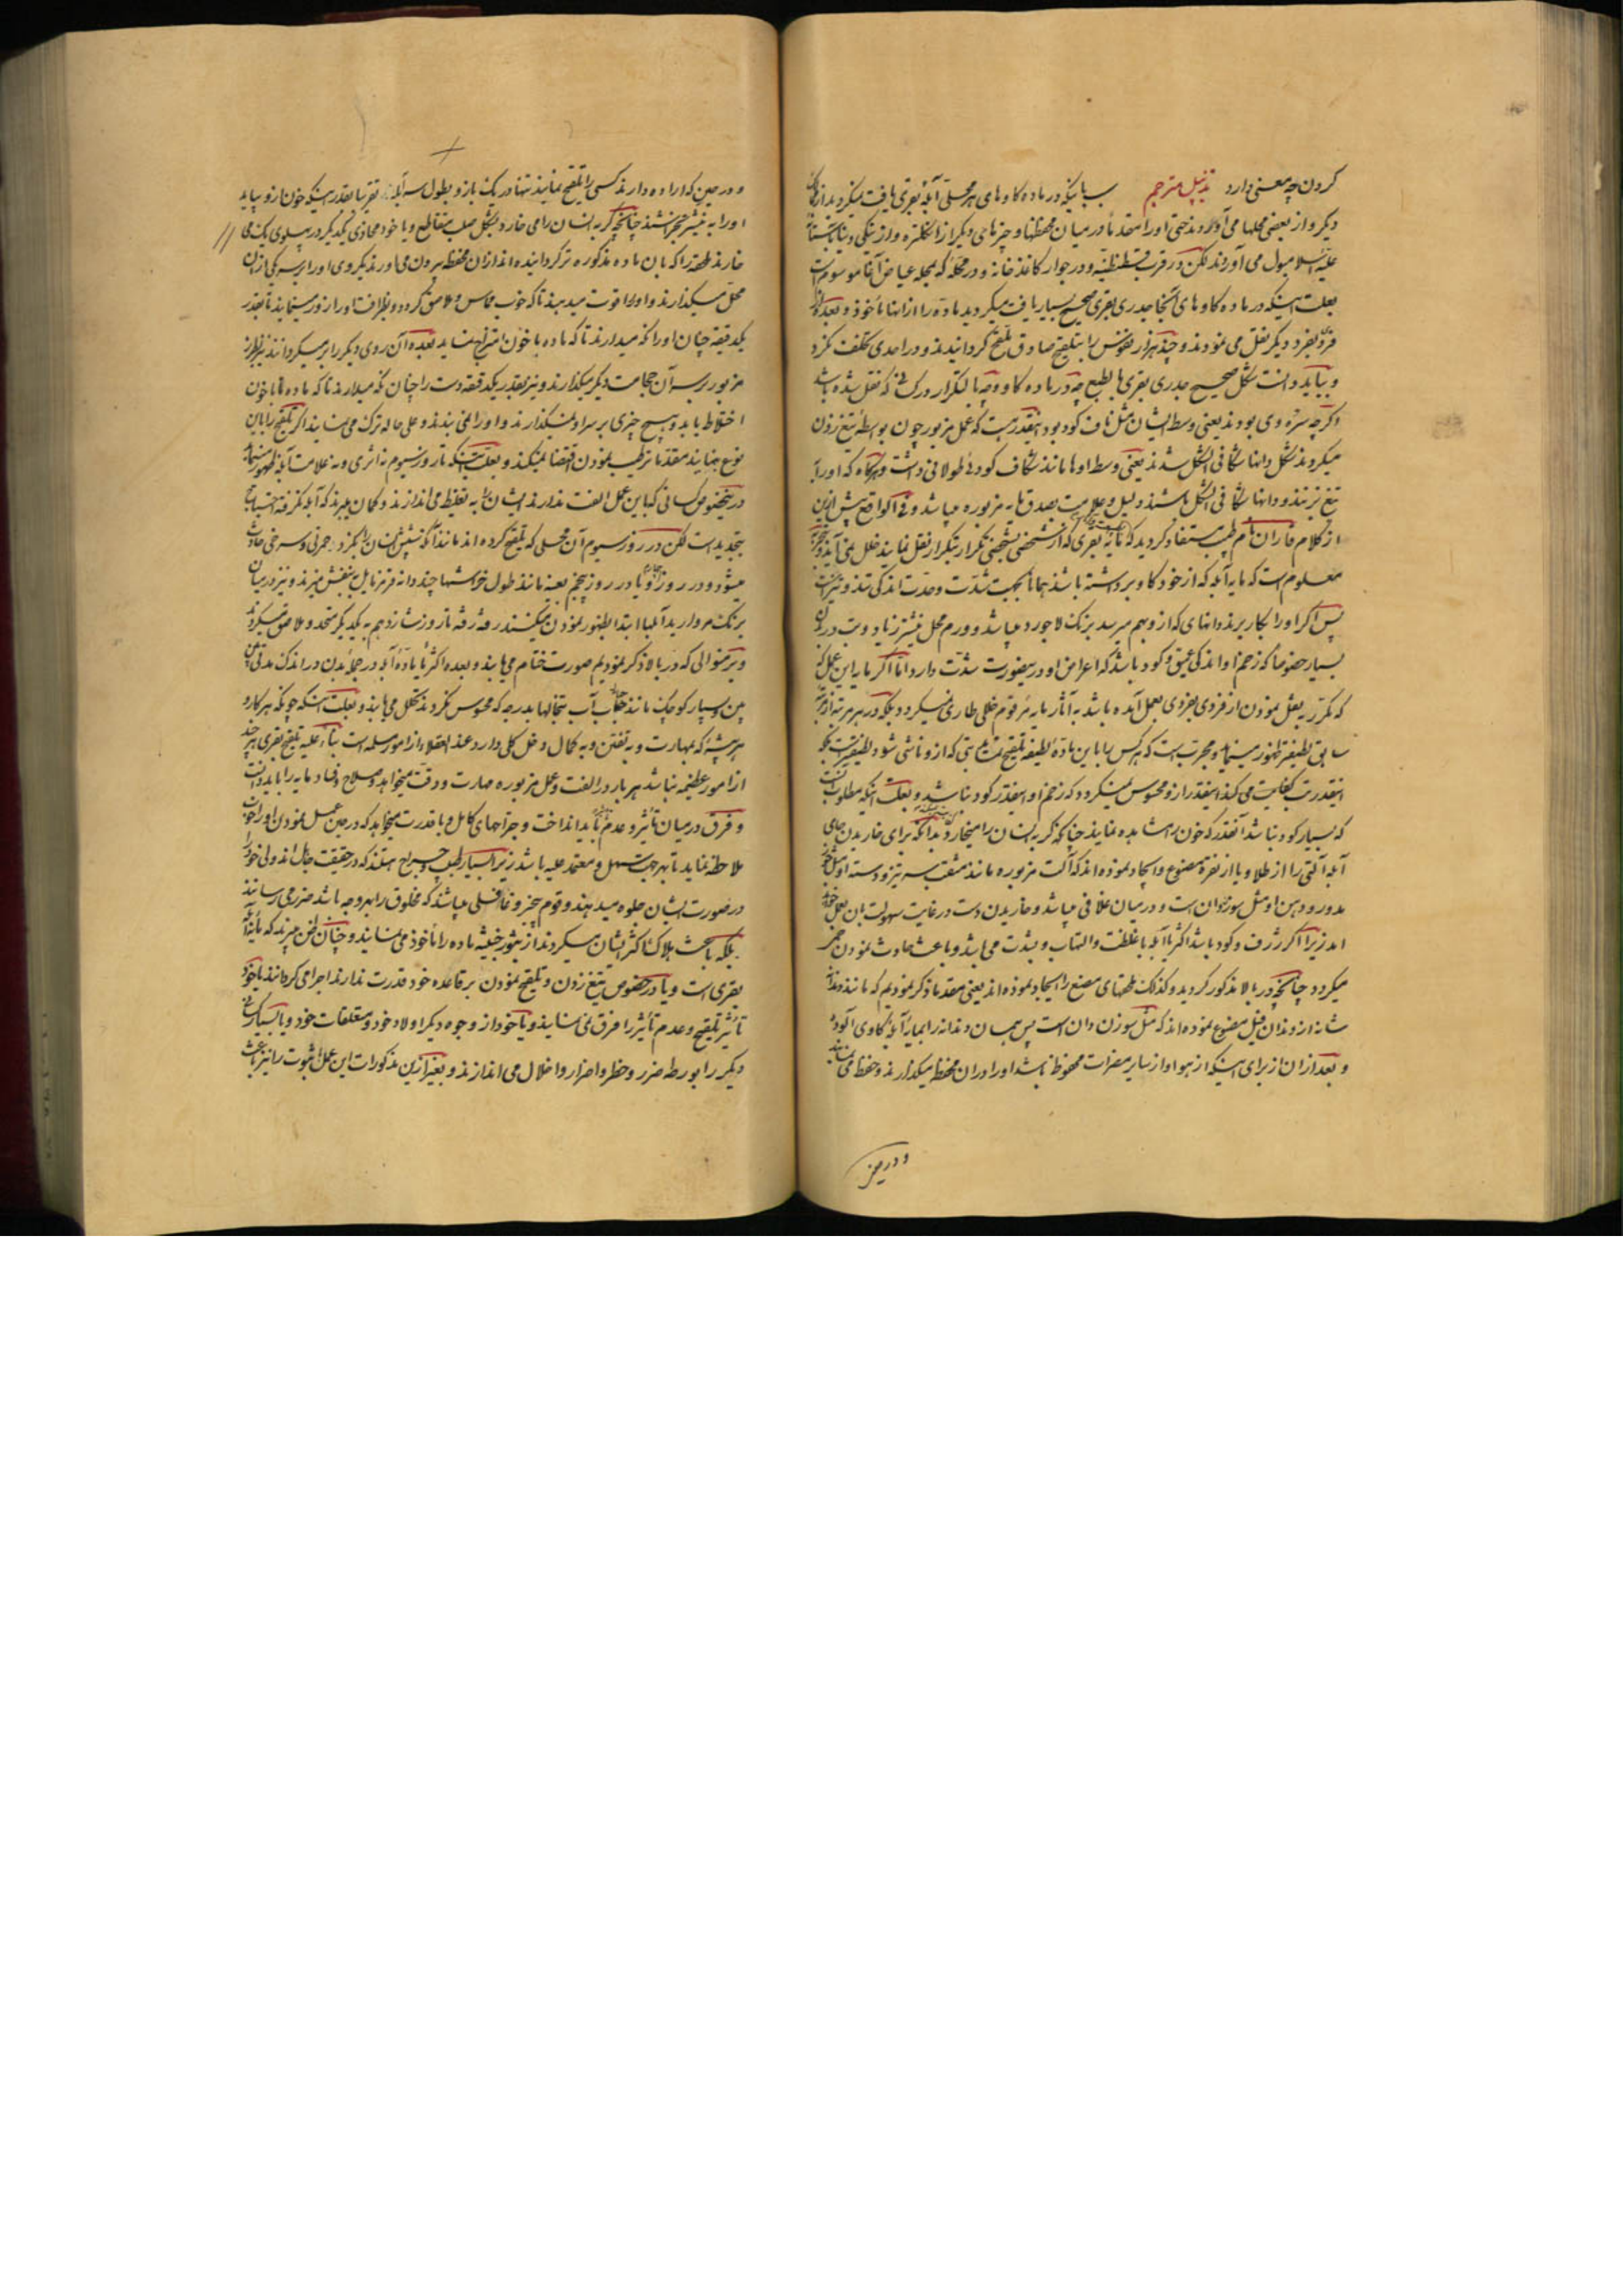 کردن چه معنی دارد تذییل مترجم سابانیکه در ماده کاوهای هر محلی آبله بقری یافت میکردید از مکان
دیکر و از بعضی محلها می آوردند حتی او را مقدماً در میان محفظها و چیزهای دیکر از انکلتره و از
علیه اسلامبول می آوردند لکن در قرب قسطنطنیه و در جوار کاغذخانه و در محله که بمحله عیاض آقا موسوم است
بعلت اینکه در ماده کاوهای آنجا جدری بقری صحیح بسیار یافت میکردید ماده را از آنها مأخوذ و بعده از
فردی بفرد دیکر نقل می نمودند و چند هزار نفوس را بتلقیح صادق ملقح کردانیدند و در احدی تخلف نکرد
و بباید دانست شکل صحیح جدری بقری بالطبع چه در ماده کاو و چه بالتکرار در کسانی که نقل شده باشد
اکرچه سره وی بودند یعنی وسط ایشان مثل ناف کود بود اینقدر هست که عمل مزبور چون بواسطه تیغ زدن
میکردند شکل دانها شکافی الشکل شدند یعنی وسط اوها مانند شکاف کوده طولانی داشت و هرکاه که او را
تیغ نزنند و دانها شکافی الشکل باشند دلیل و علامت صدق مایه مزبوره میباشد و فی الواقع پیش ازین
از کلام فاران نام طبیب مستفاد کردید که مایه بقری که از شخصی بشخصی تکرار بتکرار نقل نمایند خلل نمی آید
معلوم است که مایه آبله که از خود کاو برداشته باشند همانا بجهت شدت وحدت اندکی تند و تیز است
پس اکر او را بکار برند دانهای که ازو بهم میرسد برنک لاجورد میباشد و ورم محل نیشتر زیاد و تب در آن
بسیار خصوصاً که زخم او اندکی عمیق و کود باشد که اعراض او در اینصورت شدت دارد اما اکر مایه این عمل که
که مکرر به نقل نمودن از فردی بفردی بعمل آمده باشد به آثار مایه مرقوم خللی طاری نمیکردد بلکه در هر مرتبه از مرتبه
سابق لطیفتر ظهور مینماید و مجرب است که هرکس را با این ماده لطیفه تلقیح نمایند تبی که ازو ناشی شود لطیفتر است
اینقدر است کفایت می کند اینقدر ازو محسوس میکردد که زخم او اینقدر کود نباشد و بعلت آنکه مطلوب آنست
که بسیار کود نباشد آنقدر که خون مشاهده نمایند چنانکه کربه انسان را میخارد بدانکه برای خاریدن جای
آبله آلتی را از طلا و یا از نقره مصنوع و ایجاد نموده اند که آلت مزبوره مانند مثقب سر تیز و دسته او مثل
مدور و دهن او مثل سوزن دان است و در میان غلافی میباشد و خاریدن دست در غایت سهولت بآن بعمل
آید زیرا اکر ژرف و کود باشد اکثر یا آبله با غلظت و التهاب و بشدت می باشد و یا باعث حادث نمودن
میکردد چنانچه در بالا مذکور کردید و کذلک طحهای مصنع را ایجاد نموده اند یعنی مقدما ذکر نمودیم که مانند دندان
شانه از دندان فیل مصنوع نموده اند که مثل سوزن دان است پس همان دندانه را بمایه آبله کاوی آلوده
و بعد از آن از برای اینکه از هوا و از سایر مضرات محفوظ باشد او را در آن محفظه میکذارند و حفظ می نمایند
و در حین
و در حین که اراده دارند کسی را تلقیح نمایند تنها در یک بازو بطول سه آبله تقریبا بقدر اینکه خون ازو بیاید
او را به نیشتر بخراشند چنانچه کربه انسان را می خارد بشکل صلیب متقاطع و یا خود محاذی یکدیکر در پهلوی یک می
خارند طحه را که بآن ماده مذکوره تر کردانیده اند از آن محفظه بیرون می آورند یکروی او را بر سر یکی از آن
محل میکذارند و او را قوت میدهند تا که خوب مماس و ملاصق کردد و بظرافت او را زور مینمایند تا بقدر
یکدقیقه چنان او را نکه میدارند تا که ماده با خون امتزاج نماید بعده آن روی دیکر را بر میکردانند نیز بر
مزبور بر سر آن حجامت دیکر میکذارند و نیز بقدر یکدقیقه دست را چنان نکه میدارند تا که ماده با خون
اختلاط یابد و هیچ چیزی بر سر او نمیکذارند و او را نمی بندند و علی حاله ترک می نمایند اکر تلقیح را باین
نوع نمایند مقدما ترطیب نمودن اقتضا نمیکند و بعلت اینکه تا روز سیوم نه اثری و نه علامت آبله ظهور مینماید
درینخصوص کسانی که باین عمل الفت ندارند ایشان را به تغلیط می اندازند و کمان میبرند که آبله نکرفته احتیاج
بتجدید است لکن در روز سیوم آن محلی که تلقیح کرده اند مانند آنکه شپش انسان را بکزد حمرتی و سرخی حادث
میشود و در روز چهارم و یا در روز پنجم بعینه مانند طول خراشها چند دانه قرمز مایل به بنفش میزند و نیز در میان
برنک مروارید آبلها ابتدا بظهور نمودن میکنند رفته رفته تا روز شانزدهم به یکدیکر متحد و ملاصق میکردند
و برمنوالی که در بالا ذکر نمودیم صورت ختام می یابند و بعده اکثریا ماده آبله در جمله بدن در اندک مدتی
پهن و بسیار کوچک مانند حباب آب تنخالها بدرجه که محسوس نکردند تشکل می یابند و بعلت اینکه چونکه هر کار و
هر پیشه که بمهارت و به تفنن و به کمال دخل کلی دارد عند العقلا از امور مسلمه است بناءً علیه تلقیح بقری هر چند
از امور عظیمه نباشد هر بار در الفت و عمل مزبوره مهارت و دقت میخواهد و صلاح و فساد مایه را باید دانست
و فرق در میان تأثیر و عدم تأثیر باید انداخت و جراحهای کامل و با قدرت میخواهد که در حین عمل نمودن او را خوب
ملاحظه نماید تا بهر جهت سهل و معتمد علیه باشد زیرا بسیار طبیب و جراح هستند که در حقیقت جاهل اند ولی خود را
در صورت ایشان جلوه میدهند و قوم بیخبر و غافلی میباشند که مخلوق را بهر وجه باشد ضرر می رسانند
بلکه باعث هلاک اکثر ایشان میکردند از بثور خبیثه ماده را مأخوذ می نمایند و چنان ظن میبرند که مایه آبله
بقری است و یا در خصوص تیغ زدن و تلقیح نمودن بر قاعده خود قدرت ندارند اجرا می کردانند یا خود
تأثیر تلقیح و عدم تأثیر را فرق نمی نمایند و یا خود از وجوه دیکر اولاد خود و متعلقات خود و یا بسیار کسانی
دیکر را بورطه ضرر و خطر و اضرار و اخلال می اندازند و بغیر ازین مذکورات این عمل مثبوت را نیز باعث